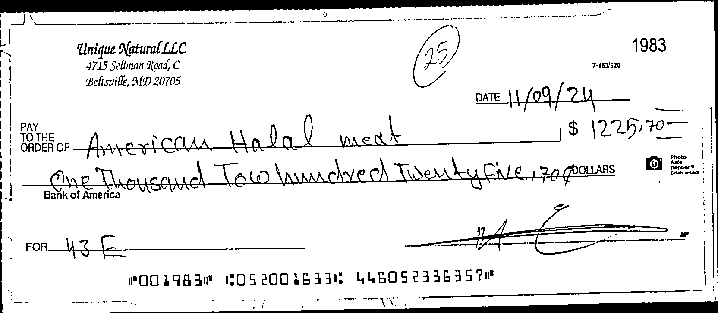 Unique Natural LLC
4713 Sellman Road, C
Beltsville, MD 20705
25
1983
DATE 11/09/24
PAY TO THE ORDER OF American Halal meat $ 1225,70
One Thousand Tow hundred Twenty five, 70¢ DOLLARS
Bank of America
FOR 43 E
⑈001983⑈ ⑆052001633⑆ 446052336357⑈